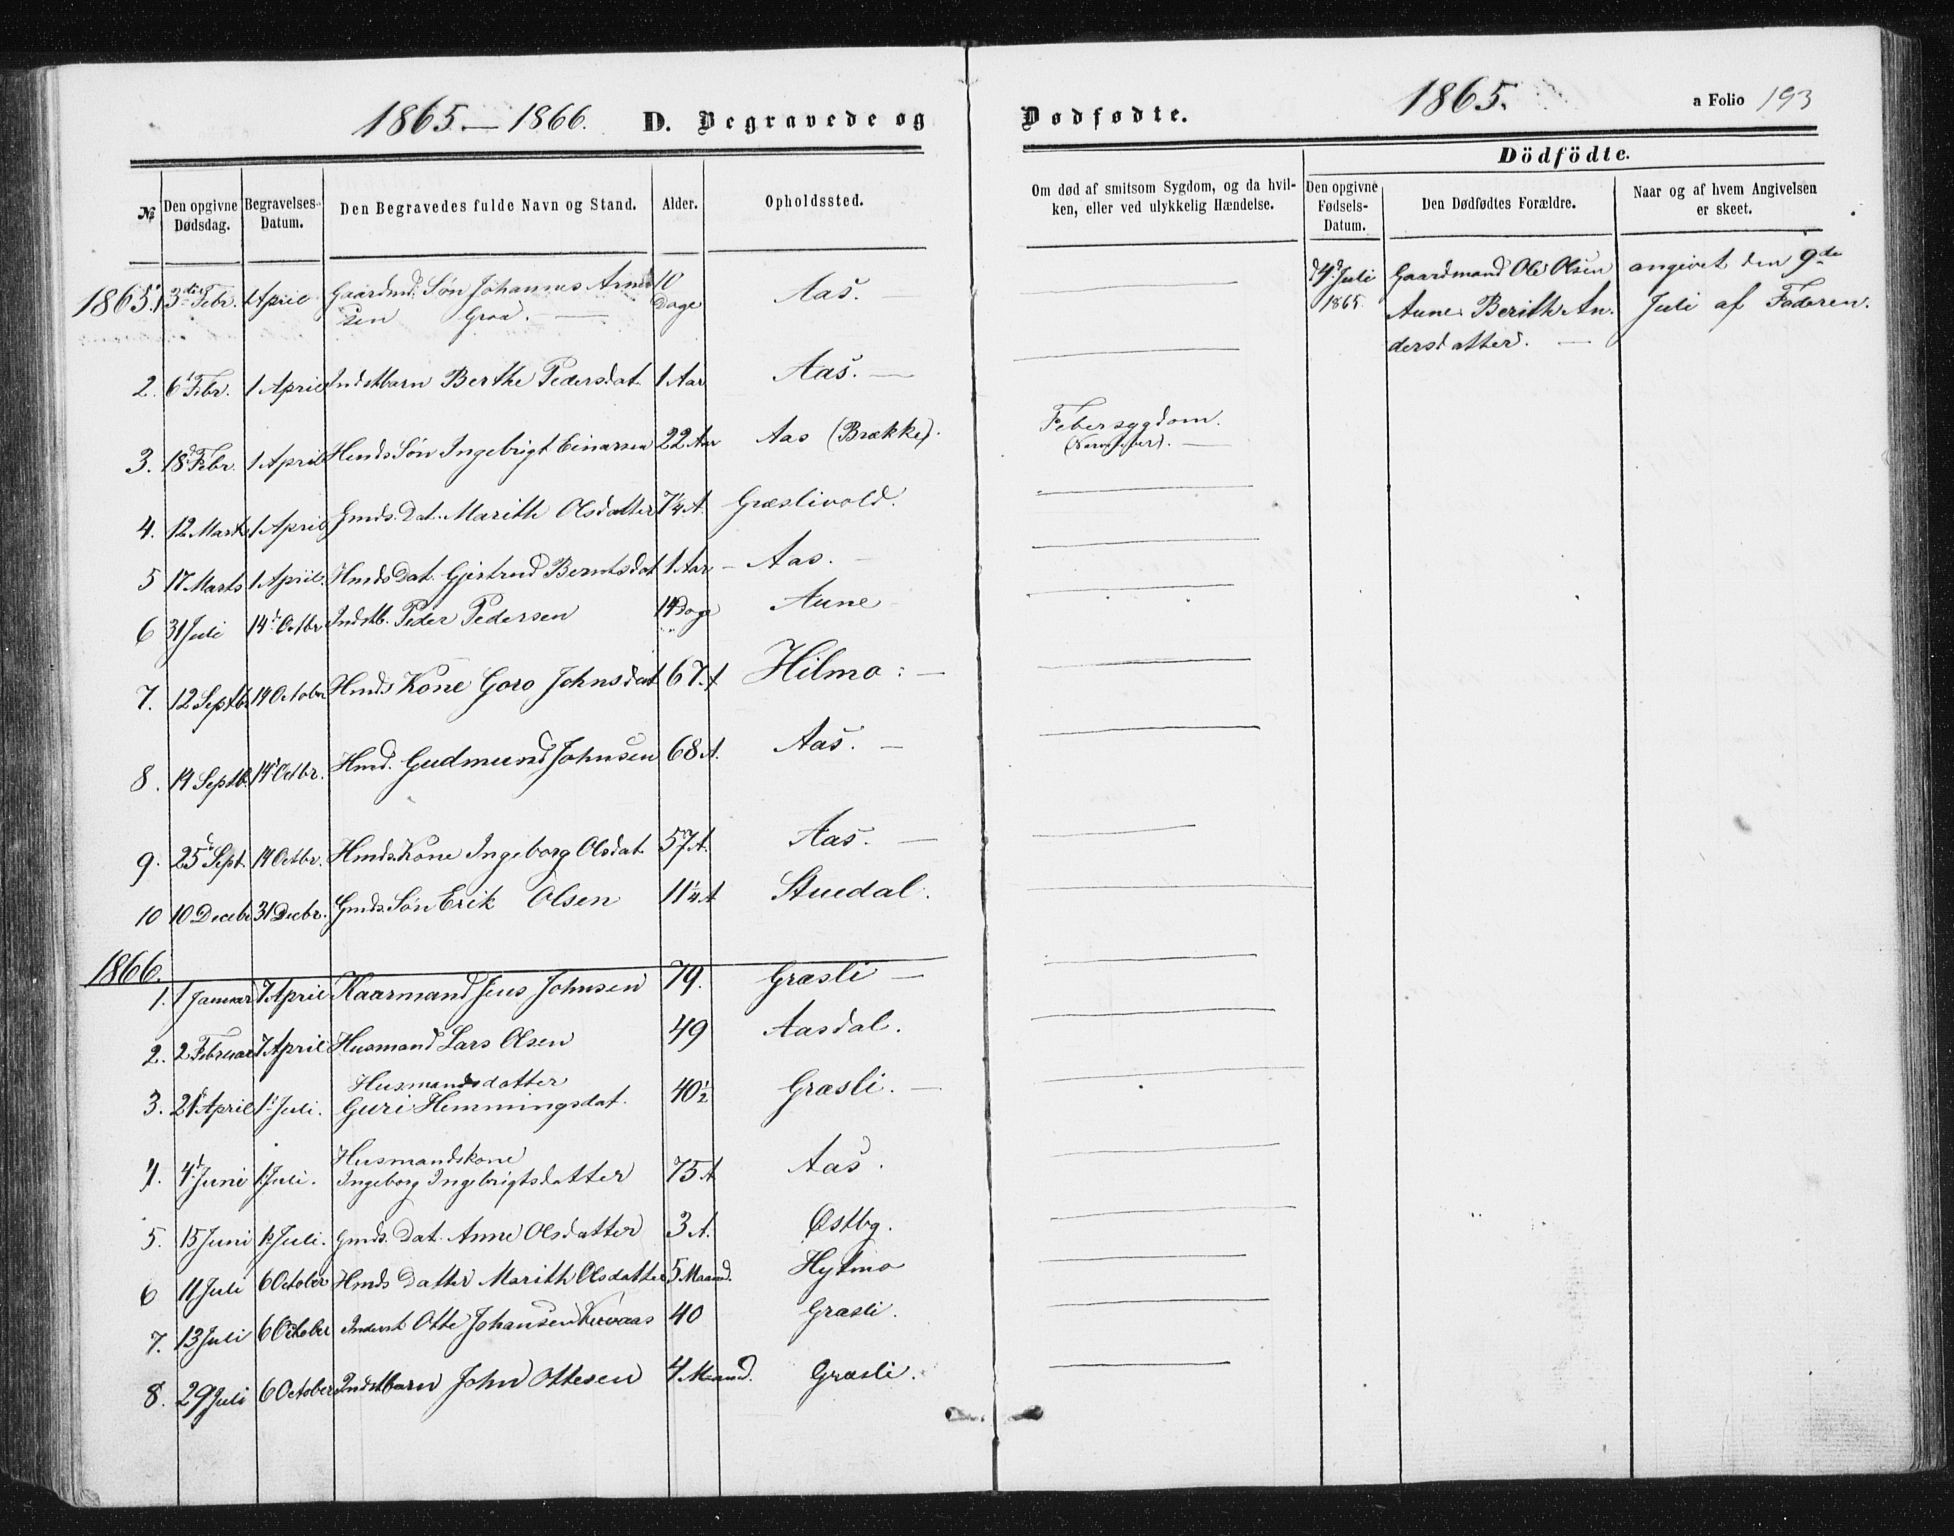 1865 — 1866. D. Begravede og
№ Den opgivne Dødsdag. Begravelses-Datum. Den Begravedes fulde Navn og Stand. Alder. Opholdssted.
1865. 1 3die Febr. 1 April Gaardmd. Søn Johannes Arnt- 10 Aas.
sen Graa. — Dage
2. 6 Febr. 1 April Indstbarn Berthe Pedersdat. 1 Aar Aas. —
3. 18d Febr. 1 April Hmds Søn Ingebrigt Einarsen 22 Aar Aas (Brække).
4. 12 Marts 1 April Gmds. Dat. Marith Olsdatter 7¼ A. Græslivold.
5 17 Marts 1 April. Hmds Dat. Gjertrud Berntsdat 1 Aar – Aas. –
6 31 Juli 14d Octbr Indstb. Peder Pedersen 14 Dage Aune –
7. 12 Septbr 14 October Hmds Kone Goro Johnsdat 67. A Hilmo : —
8. 14 Septb. 14d Octbr. Hmd. Gudmund Johnsen 68 A. Aas. —
9. 25d Sept. 14 Octbr. Hmds. Kone Ingeborg Olsdat. 57 A. Aas. —
10 10 Decebr 31 Decbr. Gmds. Søn Erik Olsen 11¼ A Stuedal.
1866.
1. 1 Januar 7 April Kaarmand Jens Johnsen 79. Græsli —
2. 2 Februar 7 April Husmand Lars Olsen 49 Aasdal.
3. 21d April 1d Juli. Husmandsdatter
Guri Hemmingsdat. 40½ Græsli. —
4. 4d Juni 1 Juli. Husmandskone
Ingeborg Ingebrigtsdatter 75 A Aas.
5. 15 Juni 1 Juli. Gmds. Dat. Anne Olsdatter 3 A. Østbg.
6 11 Juli 6 October Hmds Datter Marith Olsdatter 5 Maaned. Hytmo
7. 13 Juli 6 October Inderst Otte Johansen 40 Græsli.
8. 29 Juli 6 October Indstbarn John Ottesen 4 Maaned. Græsli.
Dødfødte. 1865. a Folio 193
Dödfödte.
Om død af smitsom Sygdom, og da hvil-
ken, eller ved ulykkelig Hændelse.
Den opgivne Fødsels-Datum. Den Dødfødtes Forældre. Naar og af hvem Angivelsen er skeet.
d 4d Juli Gaardmand Ole Olsen angivet den 9de
1865. Aune. Berith An- Juli af Faderen.
dersdatter. —
Febersygdom.